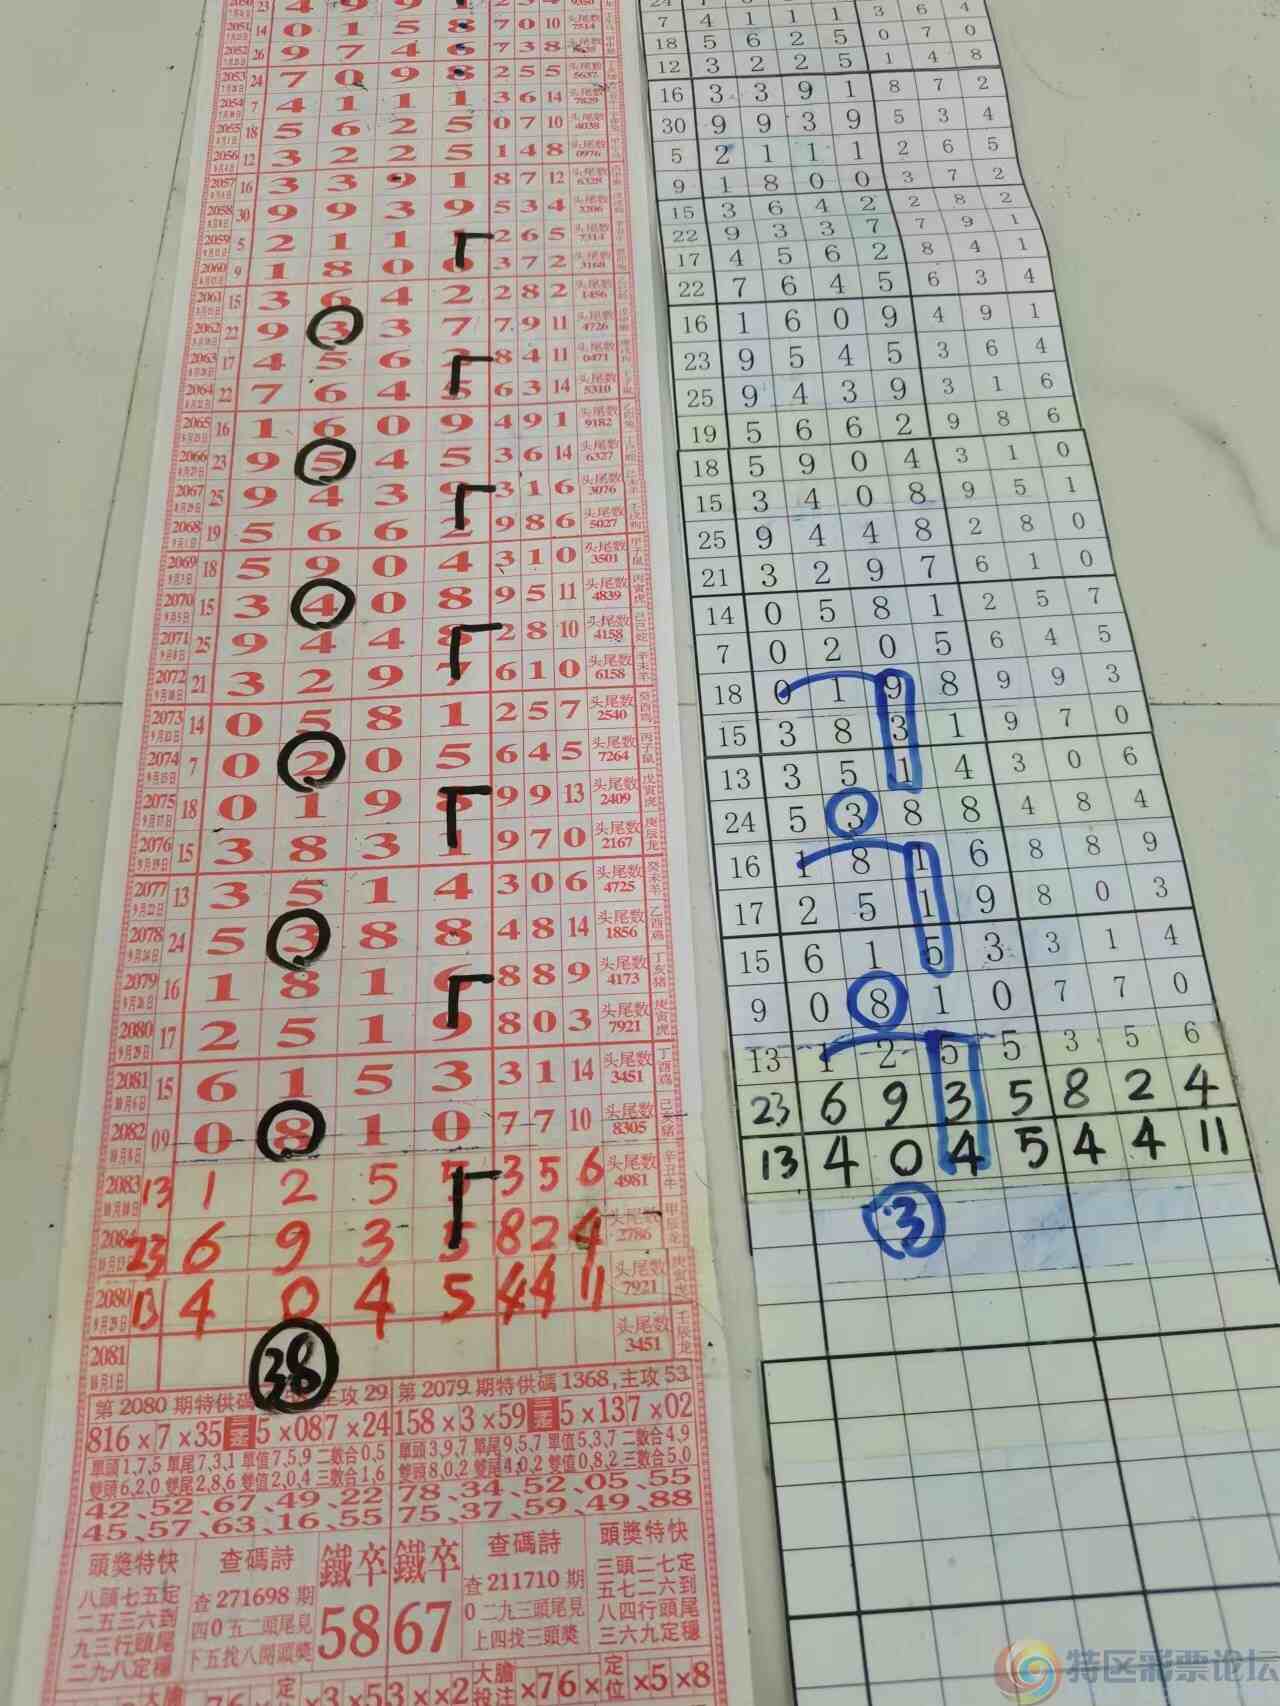 2051 14 0 1 5 8 7 0 10 头尾数 7514
2052 26 9 7 4 6 7 3 8 头尾数
2053 24 7 0 9 8 2 5 5 头尾数 5637
2054 7 4 1 1 1 3 6 14 头尾数 7829
2055 18 5 6 2 5 0 7 10 头尾数 4038
2056 12 3 2 2 5 1 4 8 头尾数 0976
2057 16 3 3 9 1 8 7 12 头尾数 6328
2058 30 9 9 3 9 5 3 4 头尾数 3206
2059 5 2 1 1 2 6 5 头尾数 7314
2060 9 1 8 0 0 3 7 2 头尾数 3168
2061 15 3 6 4 2 2 8 2 头尾数 1456
2062 22 9 3 3 7 7 9 11 头尾数 4726
2063 17 4 5 6 2 8 4 11 头尾数 0471
2064 22 7 6 4 5 6 3 14 头尾数 5310
2065 16 1 6 0 9 4 9 1 头尾数 9182
2066 23 9 5 4 5 3 6 14 头尾数 6327
2067 25 9 4 3 9 3 1 6 头尾数 3076
2068 19 5 6 6 2 9 8 6 头尾数 5027
2069 18 5 9 0 4 3 1 0 头尾数 3501
2070 15 3 4 0 8 9 5 11 头尾数 4839
2071 25 9 4 4 8 2 8 10 头尾数 4158
2072 21 3 2 9 7 6 1 0 头尾数 6158
2073 14 0 5 8 1 2 5 7 头尾数 2540
2074 7 0 2 0 5 6 4 5 头尾数 7264
2075 18 0 1 9 8 9 9 13 头尾数 2409
2076 15 3 8 3 1 9 7 0 头尾数 2167
2077 13 3 5 1 4 3 0 6 头尾数 4725
2078 24 5 3 8 8 4 8 14 头尾数 1856
2079 16 1 8 1 6 8 8 9 头尾数 4173
2080 17 2 5 1 9 8 0 3 头尾数 7921
2081 15 6 1 5 3 3 1 14 头尾数 3451
2082 09 0 8 1 0 7 7 10 头尾数 8305
2083 13 1 2 5 5 3 5 6 头尾数 4981
2084 23 6 9 3 5 8 2 4 头尾数 2786
2080 13 4 0 4 5 4 4 11 头尾数 7921
2081 头尾数 3451
38
第2080期特供碼 主攻29
816×7×35 5×087×24
單頭1,7,5 單尾7,3,1 單值7,5,9 二數合0,5
雙頭6,2,0 雙尾2,8,6 雙值2,0,4 三數合1,6
42、52、67、49、22
45、57、63、16、55
第2079期特供碼1368,主攻53
158×3×59 5×137×02
單頭3,9,7 單尾9,5,7 單值5,3,7 二數合4,9
雙頭8,0,2 雙尾4,0,2 雙值0,8,2 三數合5,0
78、34、52、05、55
75、37、59、49、88
頭獎特快
八頭七五定
二五三六到
九三行頭尾
二九八定穩
查碼詩
查271698期
四0五二頭尾見
下五找八開頭獎
鐵卒
58
鐵卒
67
查碼詩
查211710期
0二九三頭尾見
上四找三頭獎
頭獎特快
三頭二七定
五七二六到
八四行頭尾
三六九定穩
大膽投注 ×76× 定位 ×5×8
7 4 1 1 1 3 6 4
18 5 6 2 5 0 7 0
12 3 2 2 5 1 4 8
16 3 3 9 1 8 7 2
30 9 9 3 9 5 3 4
5 2 1 1 1 2 6 5
9 1 8 0 0 3 7 2
15 3 6 4 2 2 8 2
22 9 3 3 7 7 9 1
17 4 5 6 2 8 4 1
22 7 6 4 5 6 3 4
16 1 6 0 9 4 9 1
23 9 5 4 5 3 6 4
25 9 4 3 9 3 1 6
19 5 6 6 2 9 8 6
18 5 9 0 4 3 1 0
15 3 4 0 8 9 5 1
25 9 4 4 8 2 8 0
21 3 2 9 7 6 1 0
14 0 5 8 1 2 5 7
7 0 2 0 5 6 4 5
18 0 1 9 8 9 9 3
15 3 8 3 1 9 7 0
13 3 5 1 4 3 0 6
24 5 3 8 8 4 8 4
16 1 8 1 6 8 8 9
17 2 5 1 9 8 0 3
15 6 1 5 3 3 1 4
9 0 8 1 0 7 7 0
13 1 2 5 5 3 5 6
23 6 9 3 5 8 2 4
13 4 0 4 5 4 4 11
3
特区彩票论坛